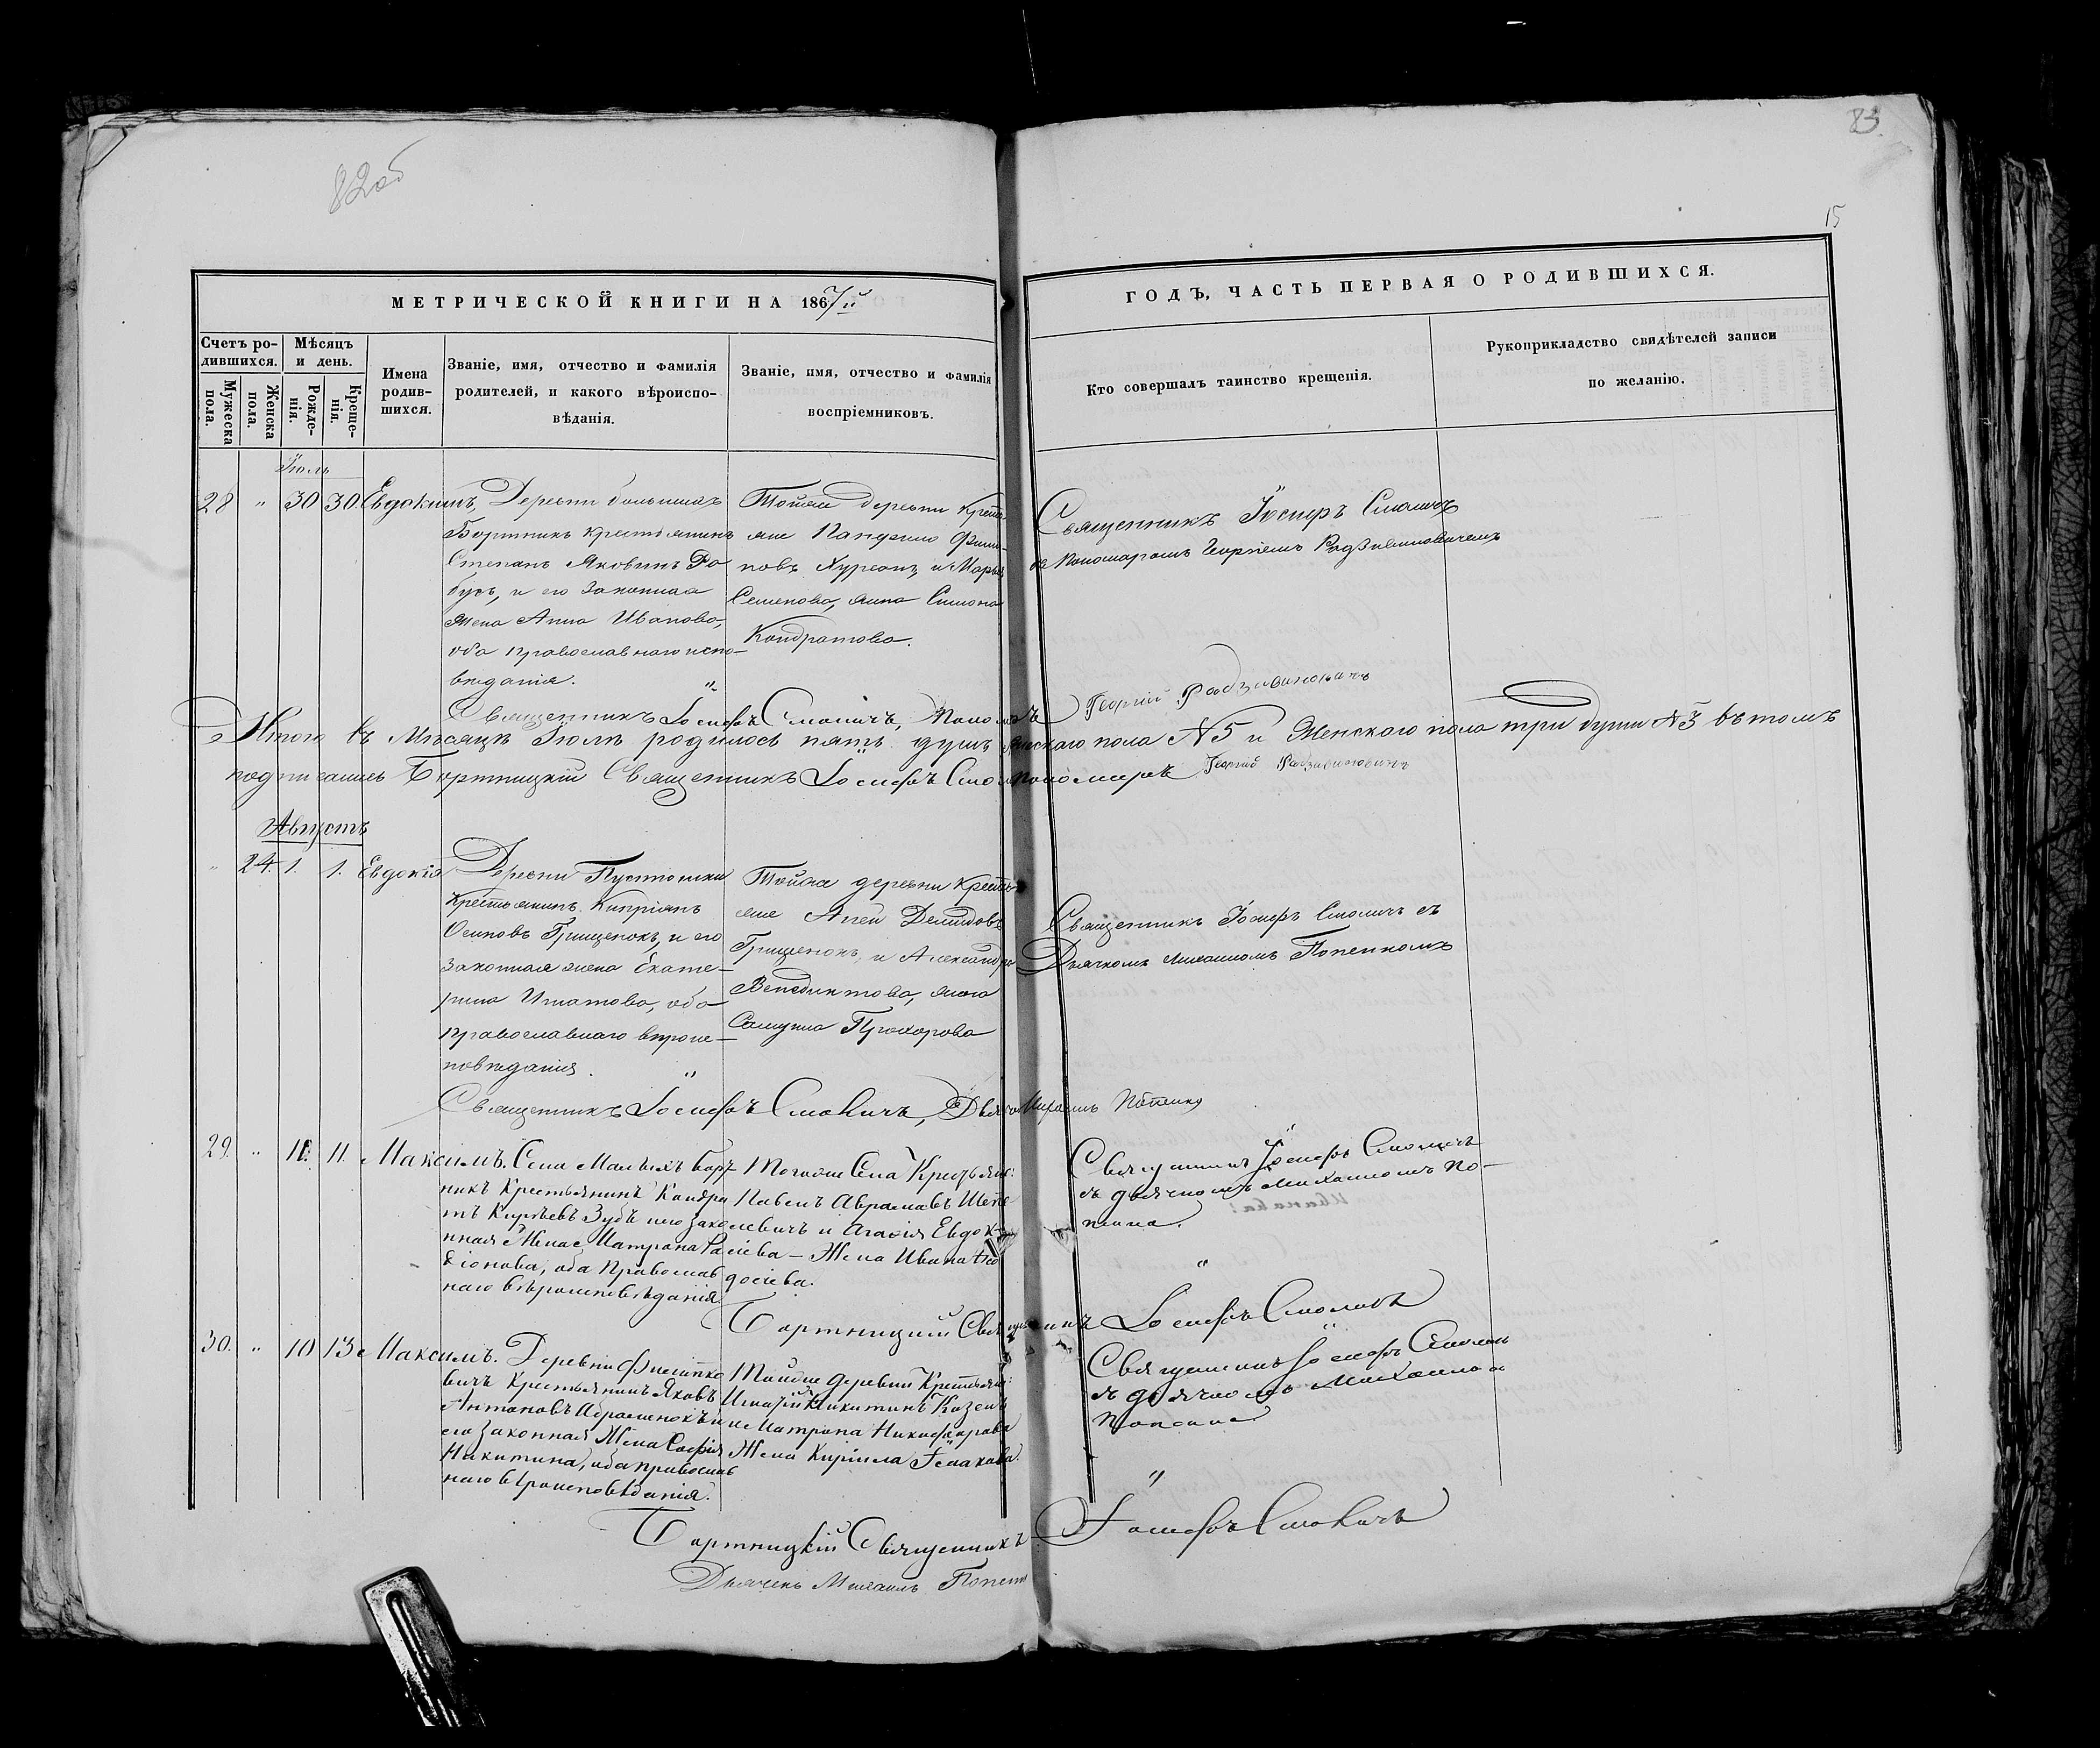 82об
83.
15
МЕТРИЧЕСКОЙ КНИГИ НА 1867й
ГОДЪ, ЧАСТЬ ПЕРВАЯ О РОДИВШИХСЯ.
Счетъ ро-
дившихся.
Мужеска
пола.
Женска
пола.
Мѣсяцъ
и день.
Рожде-
нія.
Креще-
нія.
Имена
родив-
шихся.
Званіе, имя, отчество и фамилія
родителей, и какого вѣроиспо-
вѣданія.
Званіе, имя, отчество и фамилія
воспріемниковъ.
Кто совершалъ таинство крещенія.
Рукоприкладство свидѣтелей записи
по желанію.
Іюль
28 " 30 30 Евдокимъ,
Деревни большихъ
Бортникъ крестьянинъ
Степанъ Яковинъ Ра
бусъ, и его Законная
жена Анна Иванова,
оба православнаго испо-
вѣданія. "
Тойже деревни крестья
яне Панфило Фили-
повъ Хурсанъ, и Марья
Семенова, жена Симона
Кондратова.
Священникъ Іосифъ Смоличъ
съ Пономаромъ Георгіемъ Радзивиновичемъ
Священникъ Іосифъ Смоличъ, Пономарь Георгій Радзивиновичъ
Итого въ Мѣсяцѣ Іюлѣ родилось пять душъ Мужскаго пола №5 и Женскаго пола три души №3 въ томъ
подписались Бортницкій Священникъ Іосифъ Смол Пономаръ Георгій Радзивиновичъ
Августъ
" 24. 1. 1. Евдокія
Деревни Пустоники
Крестьянинъ Кипріянъ
Осиповъ Грищенокъ, и его
законная жена Екате-
рина Игнатова, оба
православнаго вѣроис-
повѣданія. "
Тойже деревни крестья
яне Агей Демидовъ
Грищенокъ, и Александра
Венедиктова, жена
Самуила Прохорова
Священникъ Іосифъ Смоличъ съ
Дьячкомъ Михаиломъ Попенкомъ
Священникъ Іосифъ Смоличъ, Дьячекъ Михаилъ Попенко
29. " 11. 11. Максимъ.
Села Малыхъ Борт-
никъ Крестьянинъ Кандра
тъ Кирѣевъ Зубъ и его Зако
нная Жена Матрона Ра
діонова, оба Православ
наго вѣроисповѣданія
Тогоже Села Крестьяне:
Павелъ Аврамавъ Шепе-
левичъ и Агафія Евдок-
іева — Жена Ивана Ѳео
досіева.
Священникъ Іосифъ Смоличъ
съ дьячкомъ Михаиломъ По-
пенка. "
Бортницкій Священникъ Іосифъ Смоличъ
30. " 10 13 Максимъ.
Деревни Филипко
вичъ Крестьянинъ Яковъ
Антановъ Абраменокъ и
его Законная Жена Софія
Никитина, оба православ
наго вѣроисповѣданія.
Тойже деревни Крестьяне:
Игнатій Никитинъ Козелъ
и Матрона Никифорова
Жена Кирила Ѳемахова.
Священникъ Іосифъ Смоличъ
съ дьячкомъ Михаиломъ
Попенка "
Бортницкій Священникъ Іосифъ Смоличъ
Дьячекъ Михаилъ Попенк